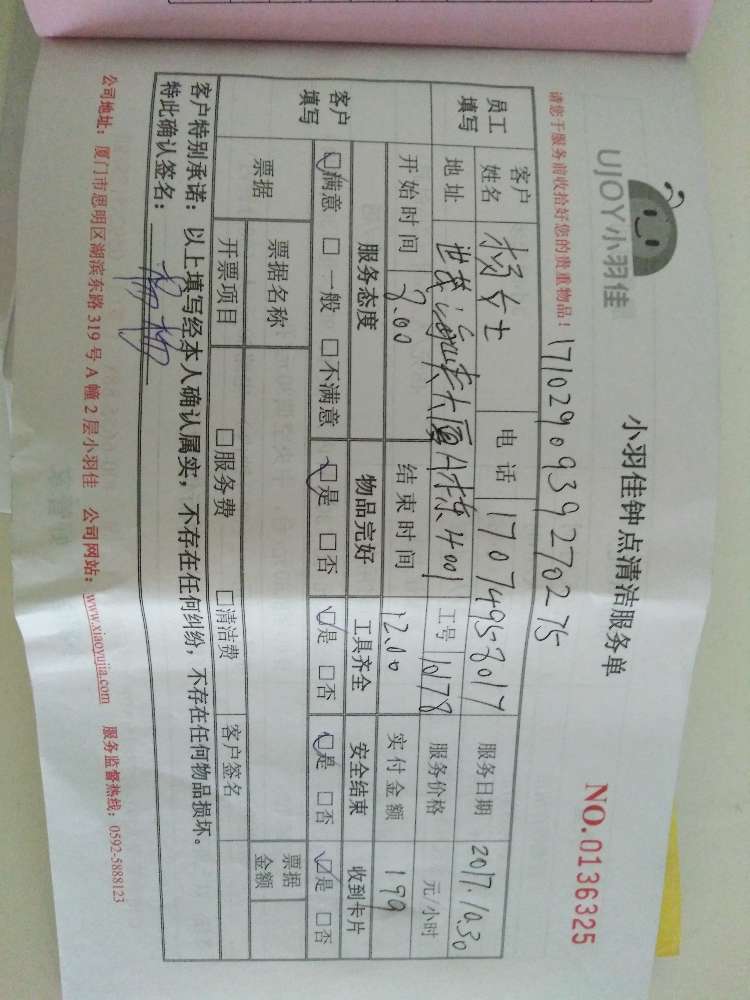 UJOY小羽佳
小羽佳钟点清洁服务单
NO.0136325
请您于服务前收拾好您的贵重物品！ 1710290939270275
员工填写 客户姓名 杨女士 电话 17074958017 服务日期 2017.10.30
地址 世茂海峡大厦A栋4001 工号 10178 服务价格 元/小时
开始时间 8.00 结束时间 12.00 实付金额 199
客户填写 服务态度 物品完好 工具齐全 安全结束 收到卡片
☑满意 □一般 □不满意 ☑是 □否 ☑是 □否 ☑是 □否 ☑是 □否
票据 票据名称 票据金额
开票项目 □服务费 □清洁费 客户签名
客户特别承诺：以上填写经本人确认属实，不存在任何纠纷，不存在任何物品损坏。
特此确认签名：
公司地址：厦门市思明区湖滨东路319号A幢2层小羽佳 公司网站：www.xiaoyujia.com 服务监督热线：0592-5888123